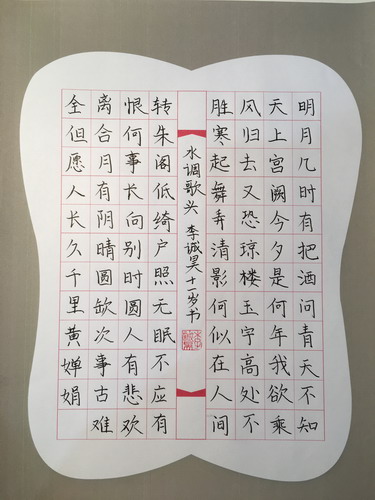 明月几时有把酒问青天不知
天上宫阙今夕是何年我欲乘
风归去又恐琼楼玉宇高处不
胜寒起舞弄清影何似在人间
水调歌头 李诚昊十一岁书
转朱阁低绮户照无眠不应有
恨何事长向别时圆人有悲欢
离合月有阴晴圆缺次事古难
全但愿人长久千里黄婵娟